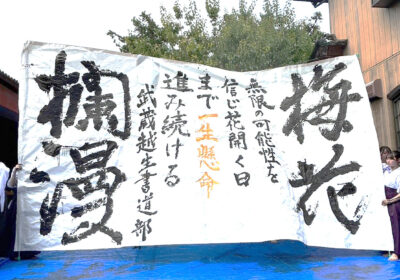 梅花
無限の可能性を
信じ花開く日
まで一生懸命
進み続ける
武蔵越生書道部
爛漫